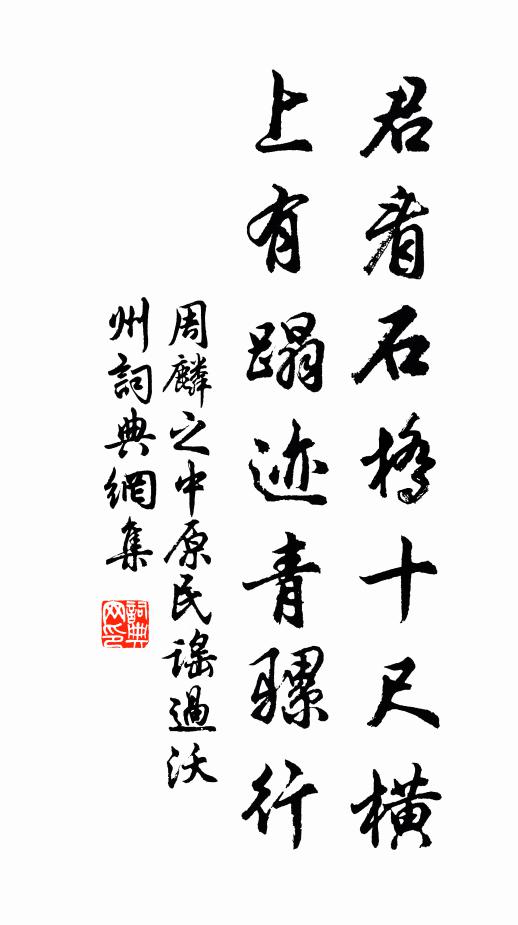 君看石橋十尺橫
上有蹋迹青騾行
周麟之中原民謠過沃
州詞典網集
詞典網印